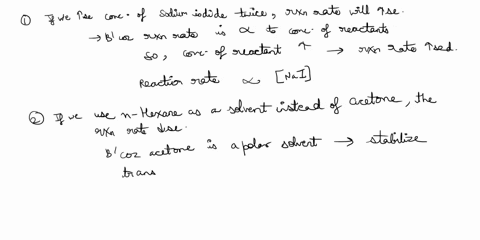 ① If we ↑se conc. of sodium iodide twice, rxn rate will ↑se.
→ B'coz rxn rate is ∝ to conc. of reactants
So, conc. of reactant ↑ → rxn rate ↑sed.
Reaction rate ∝ [NaI]
② If we use n-Hexane as a solvent instead of acetone, the
rxn rate ↓se.
B'coz acetone is a polar solvent → stabilize
trans